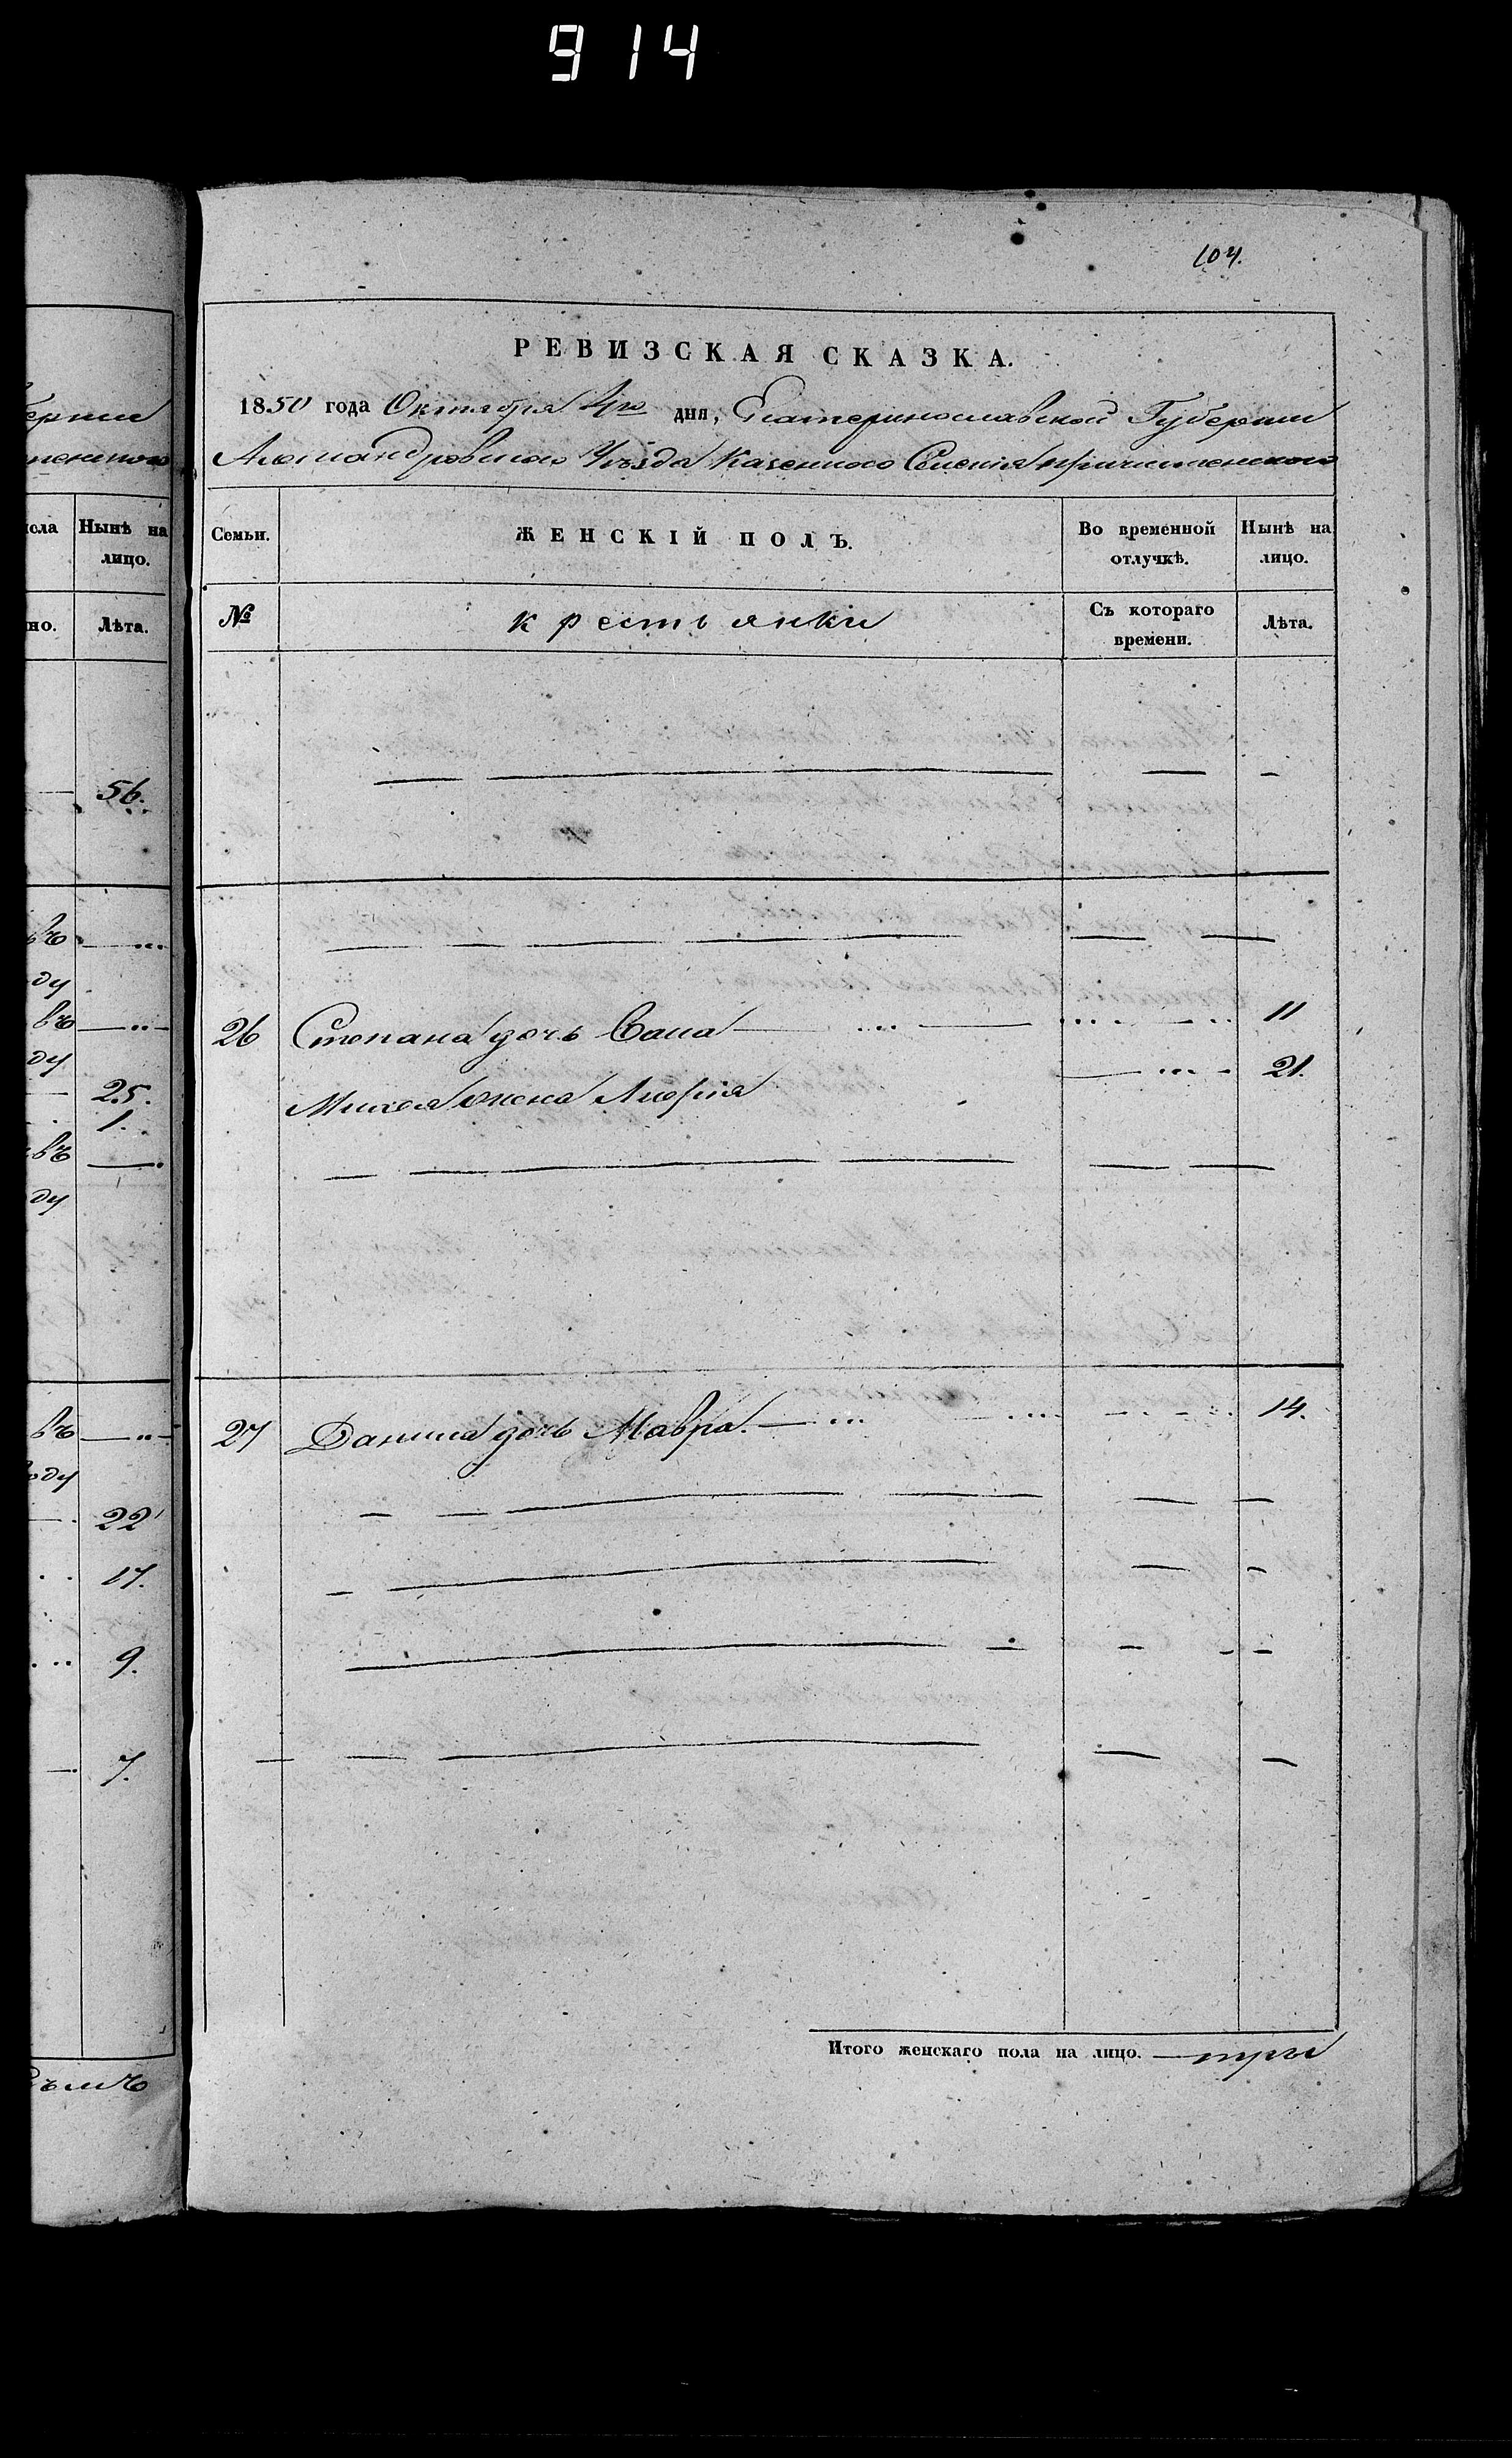 914
104.
РЕВИЗСКАЯ СКАЗКА.
1850 года Октября 4го дня, Екатеринославской Губернии
Александровскаго Уѣзда Казеннаго Селенія Пречистенскаго
Нынѣ на лицо.
Лѣта.
Семьи.
ЖЕНСКІЙ ПОЛЪ.
Во временной отлучкѣ.
Нынѣ на лицо.
№
крестьянки
Съ котораго времени.
Лѣта.
56.
26 Степана дочь 11
25.
1.
Михея жена 21.
27 Данила дочь Мавра. 14.
22
17.
9.
7.
Итого женскаго пола на лицо. три